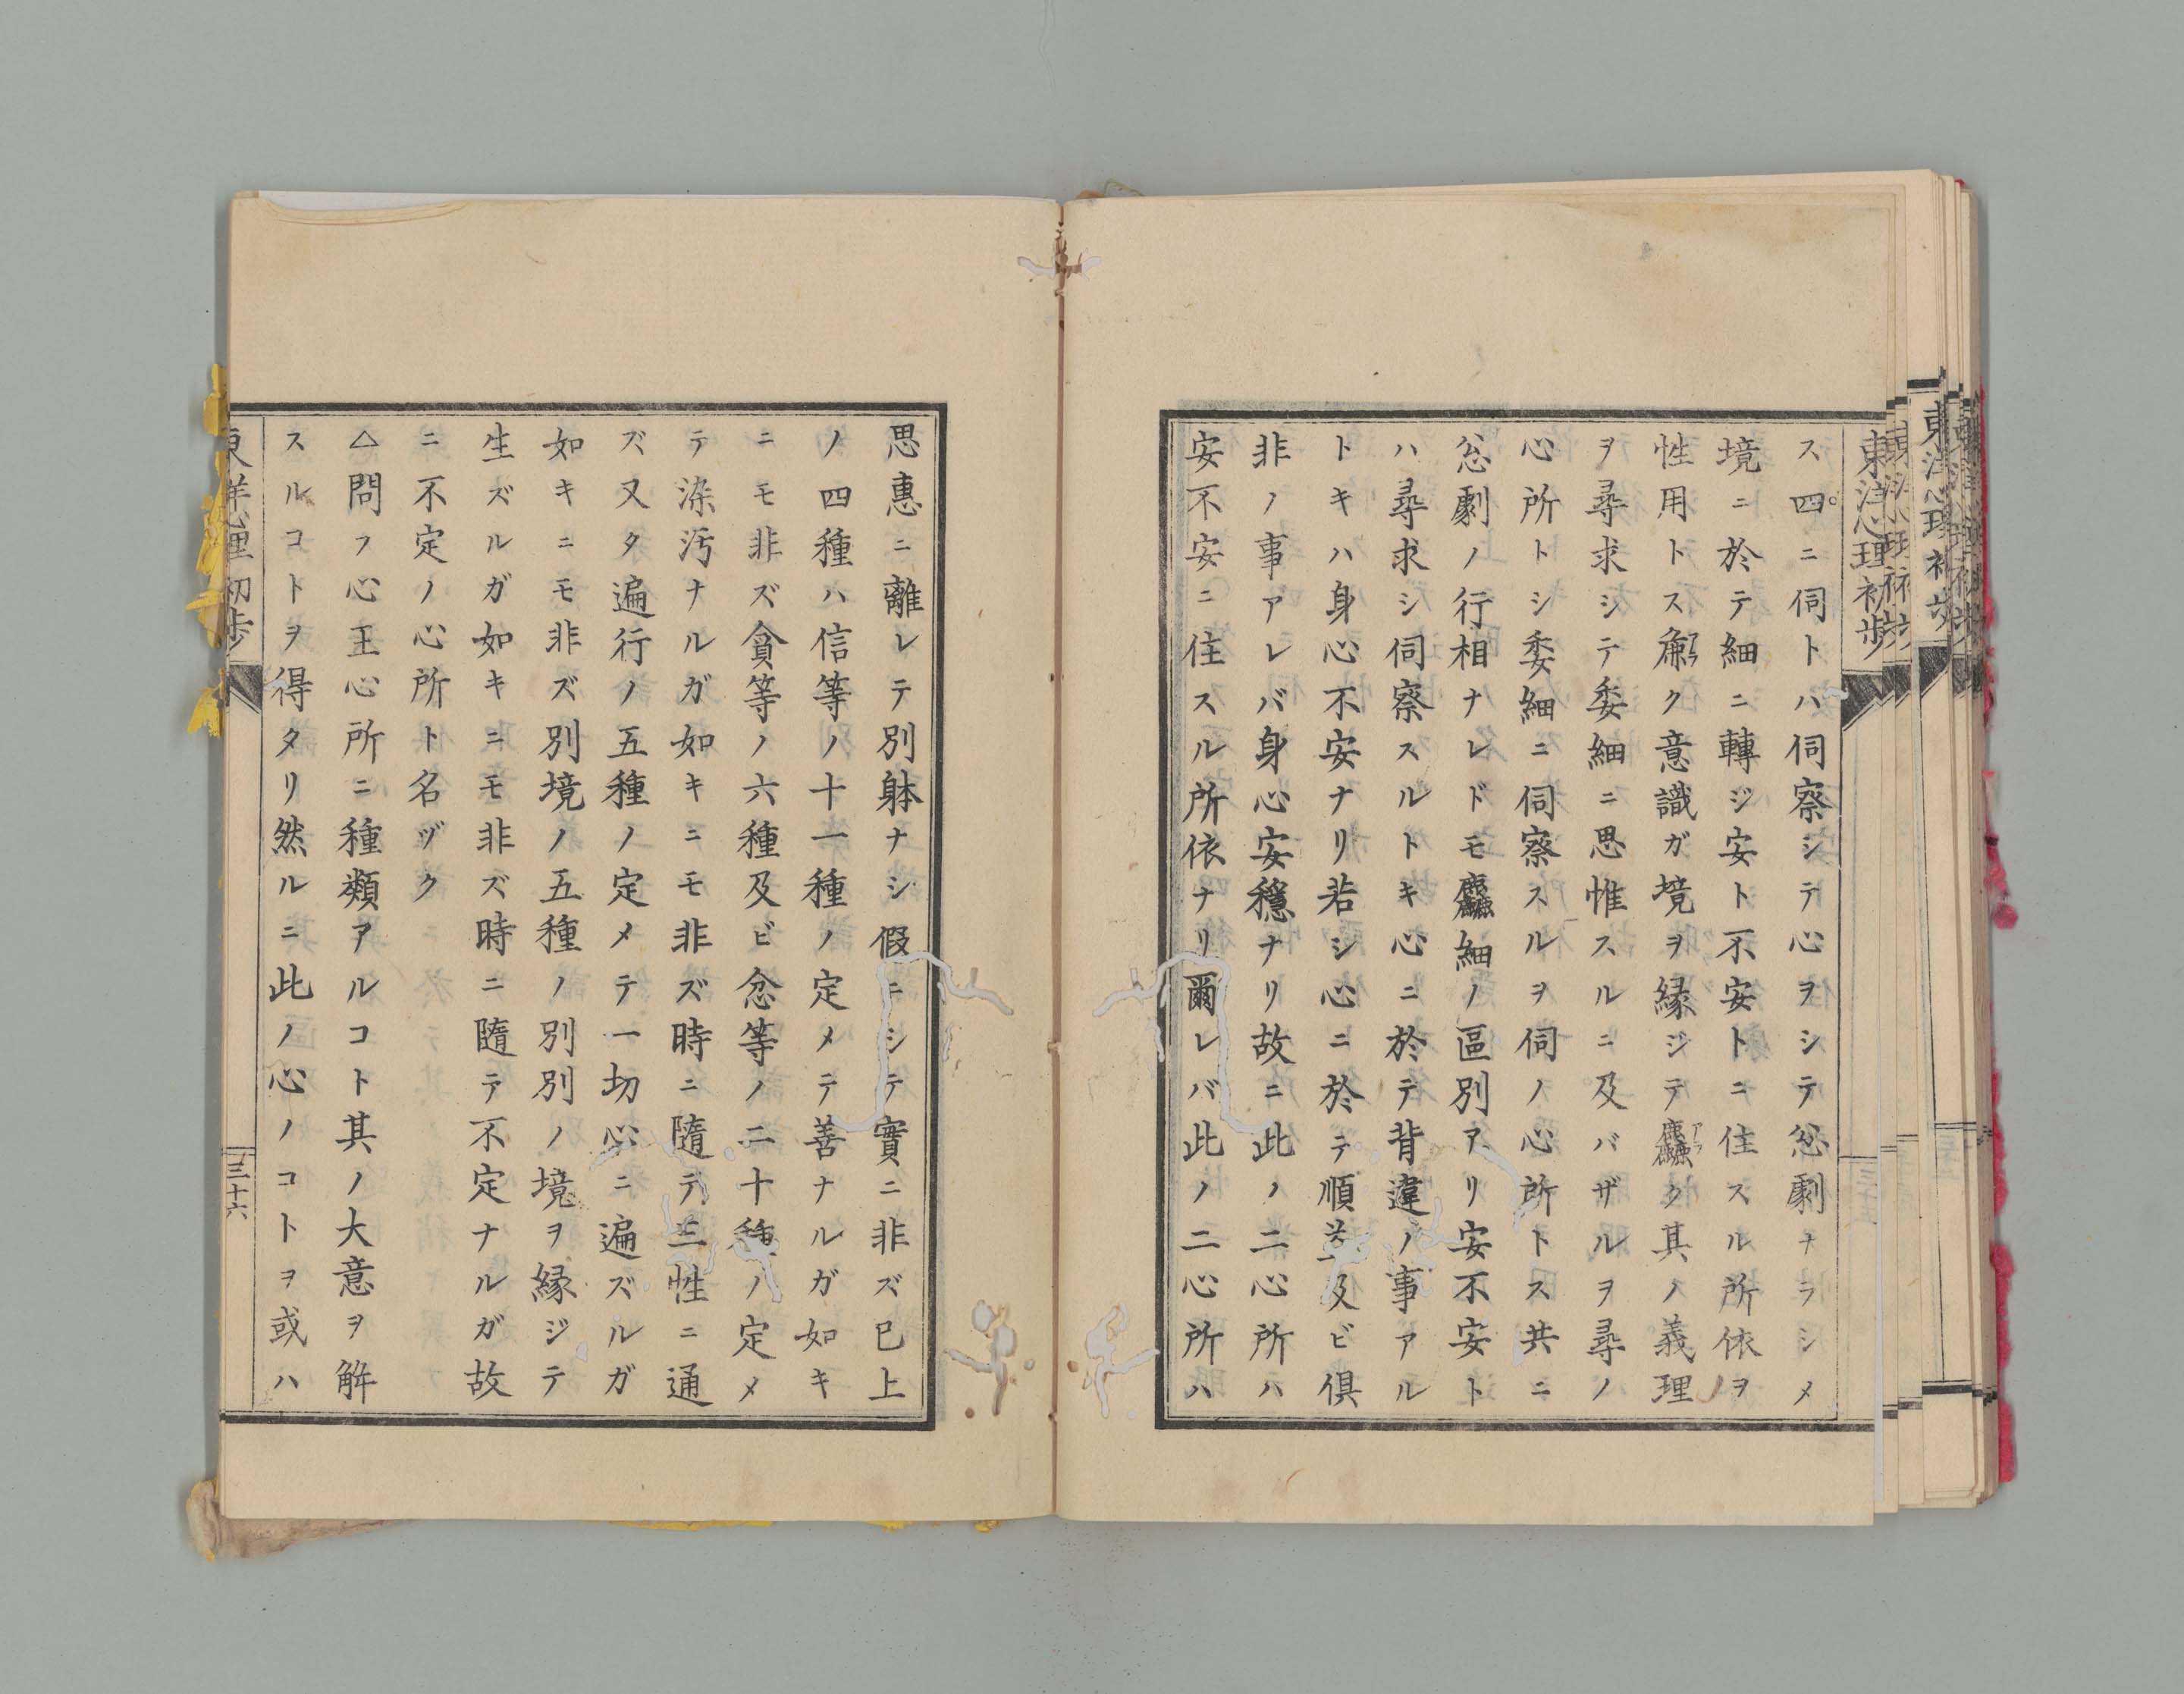 東洋心理初歩
ス四ニ伺トハ伺察シテ心ヲシテ怱劇ナラシメ
境ニ於テ細ニ轉ジ安ト不安トニ住スル所依ヲ
性用トス麁ク意識ガ境ヲ縁ジテ麤ク其ノ義理
ヲ尋求シテ委細ニ思惟スルニ及バザルヲ尋ノ
心所トシ委細ニ伺察スルヲ伺ノ心所トス共ニ
怱劇ノ行相ナレドモ麤細ノ區別アリ安不安ト
ハ尋求シ伺察スルトキ心ニ於テ背違ノ事アル
トキハ身心不安ナリ若シ心ニ於テ順益及ビ倶
非ノ事アレバ身心安穩ナリ故ニ此ノ二心所ハ
安不安ニ住スル所依ナリ爾レバ此ノ二心所ハ
思惠ニ離レテ別躰ナシ假ニシテ實ニ非ズ已上
ノ四種ハ信等ノ十一種ノ定メテ善ナルガ如キ
ニモ非ズ貪等ノ六種及ビ忿等ノ二十種ノ定メ
テ染汚ナルガ如キニモ非ズ時ニ隨テ三性ニ通
ズ又タ遍行ノ五種ノ定メテ一切心ニ遍ズルガ
如キニモ非ズ別境ノ五種ノ別別ノ境ヲ縁ジテ
生ズルガ如キニモ非ズ時ニ隨テ不定ナルガ故
ニ不定ノ心所ト名ヅク
△問フ心王心所ニ種類アルコト其ノ大意ヲ解
スルコトヲ得タリ然ルニ此ノ心ノコトヲ或ハ
東洋心理初歩
三十六